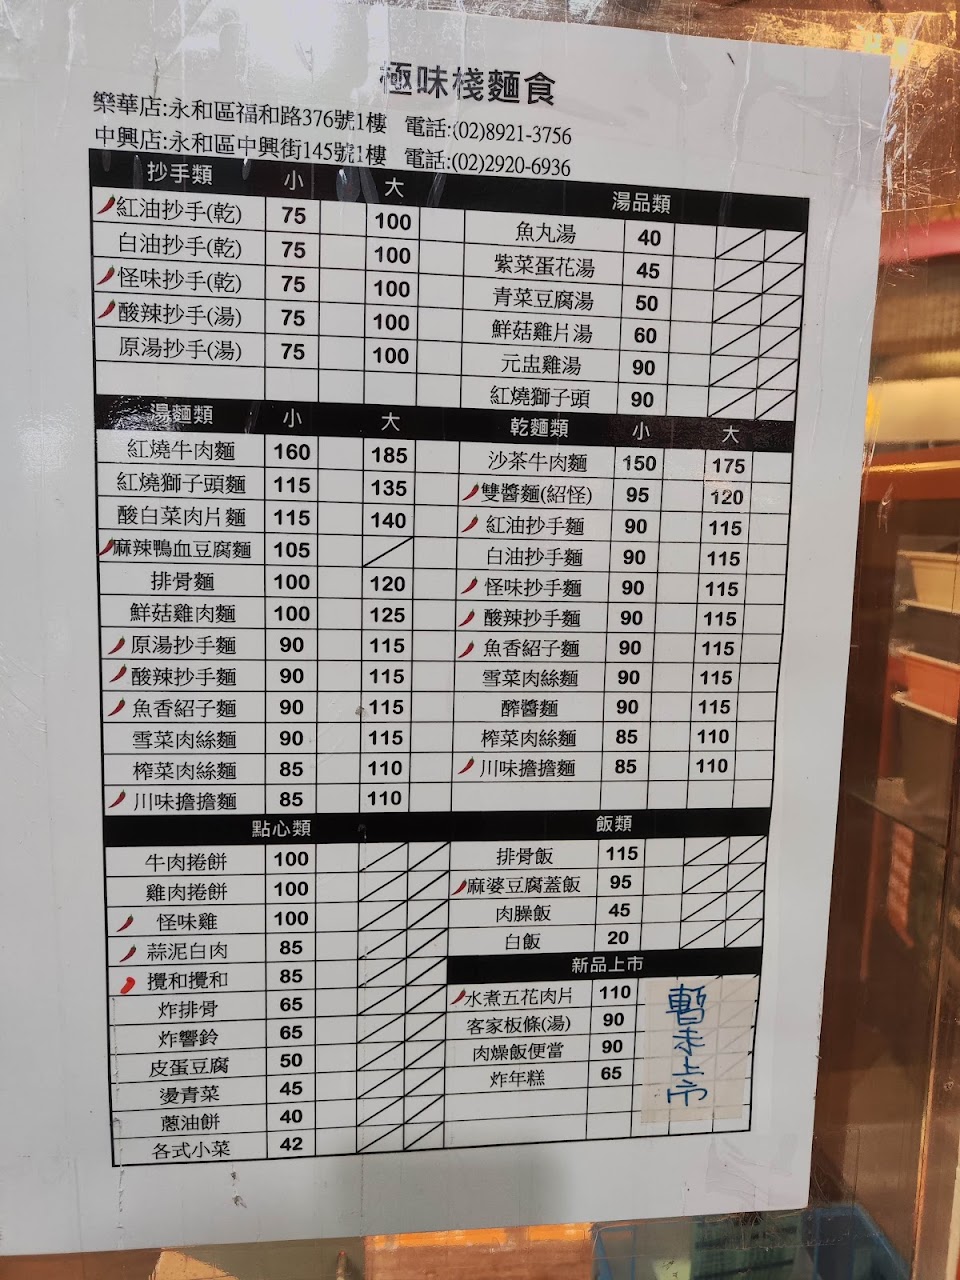 極味棧麵食
樂華店:永和區福和路376號1樓 電話:(02)8921-3756
中興店:永和區中興街145號1樓 電話:(02)2920-6936
抄手類 小 大
紅油抄手(乾) 75 100
白油抄手(乾) 75 100
怪味抄手(乾) 75 100
酸辣抄手(湯) 75 100
原湯抄手(湯) 75 100
湯品類
魚丸湯 40
紫菜蛋花湯 45
青菜豆腐湯 50
鮮菇雞片湯 60
元盅雞湯 90
紅燒獅子頭 90
湯麵類 小 大
紅燒牛肉麵 160 185
紅燒獅子頭麵 115 135
酸白菜肉片麵 115 140
麻辣鴨血豆腐麵 105
排骨麵 100 120
鮮菇雞肉麵 100 125
原湯抄手麵 90 115
酸辣抄手麵 90 115
魚香紹子麵 90 115
雪菜肉絲麵 90 115
榨菜肉絲麵 85 110
川味擔擔麵 85 110
乾麵類 小 大
沙茶牛肉麵 150 175
雙醬麵(紹怪) 95 120
紅油抄手麵 90 115
白油抄手麵 90 115
怪味抄手麵 90 115
酸辣抄手麵 90 115
魚香紹子麵 90 115
雪菜肉絲麵 90 115
醡醬麵 90 115
榨菜肉絲麵 85 110
川味擔擔麵 85 110
點心類
牛肉捲餅 100
雞肉捲餅 100
怪味雞 100
蒜泥白肉 85
攪和攪和 85
炸排骨 65
炸響鈴 65
皮蛋豆腐 50
燙青菜 45
蔥油餅 40
各式小菜 42
飯類
排骨飯 115
麻婆豆腐蓋飯 95
肉臊飯 45
白飯 20
新品上市
水煮五花肉片 110
客家板條(湯) 90
肉燥飯便當 90
炸年糕 65
暫未上市